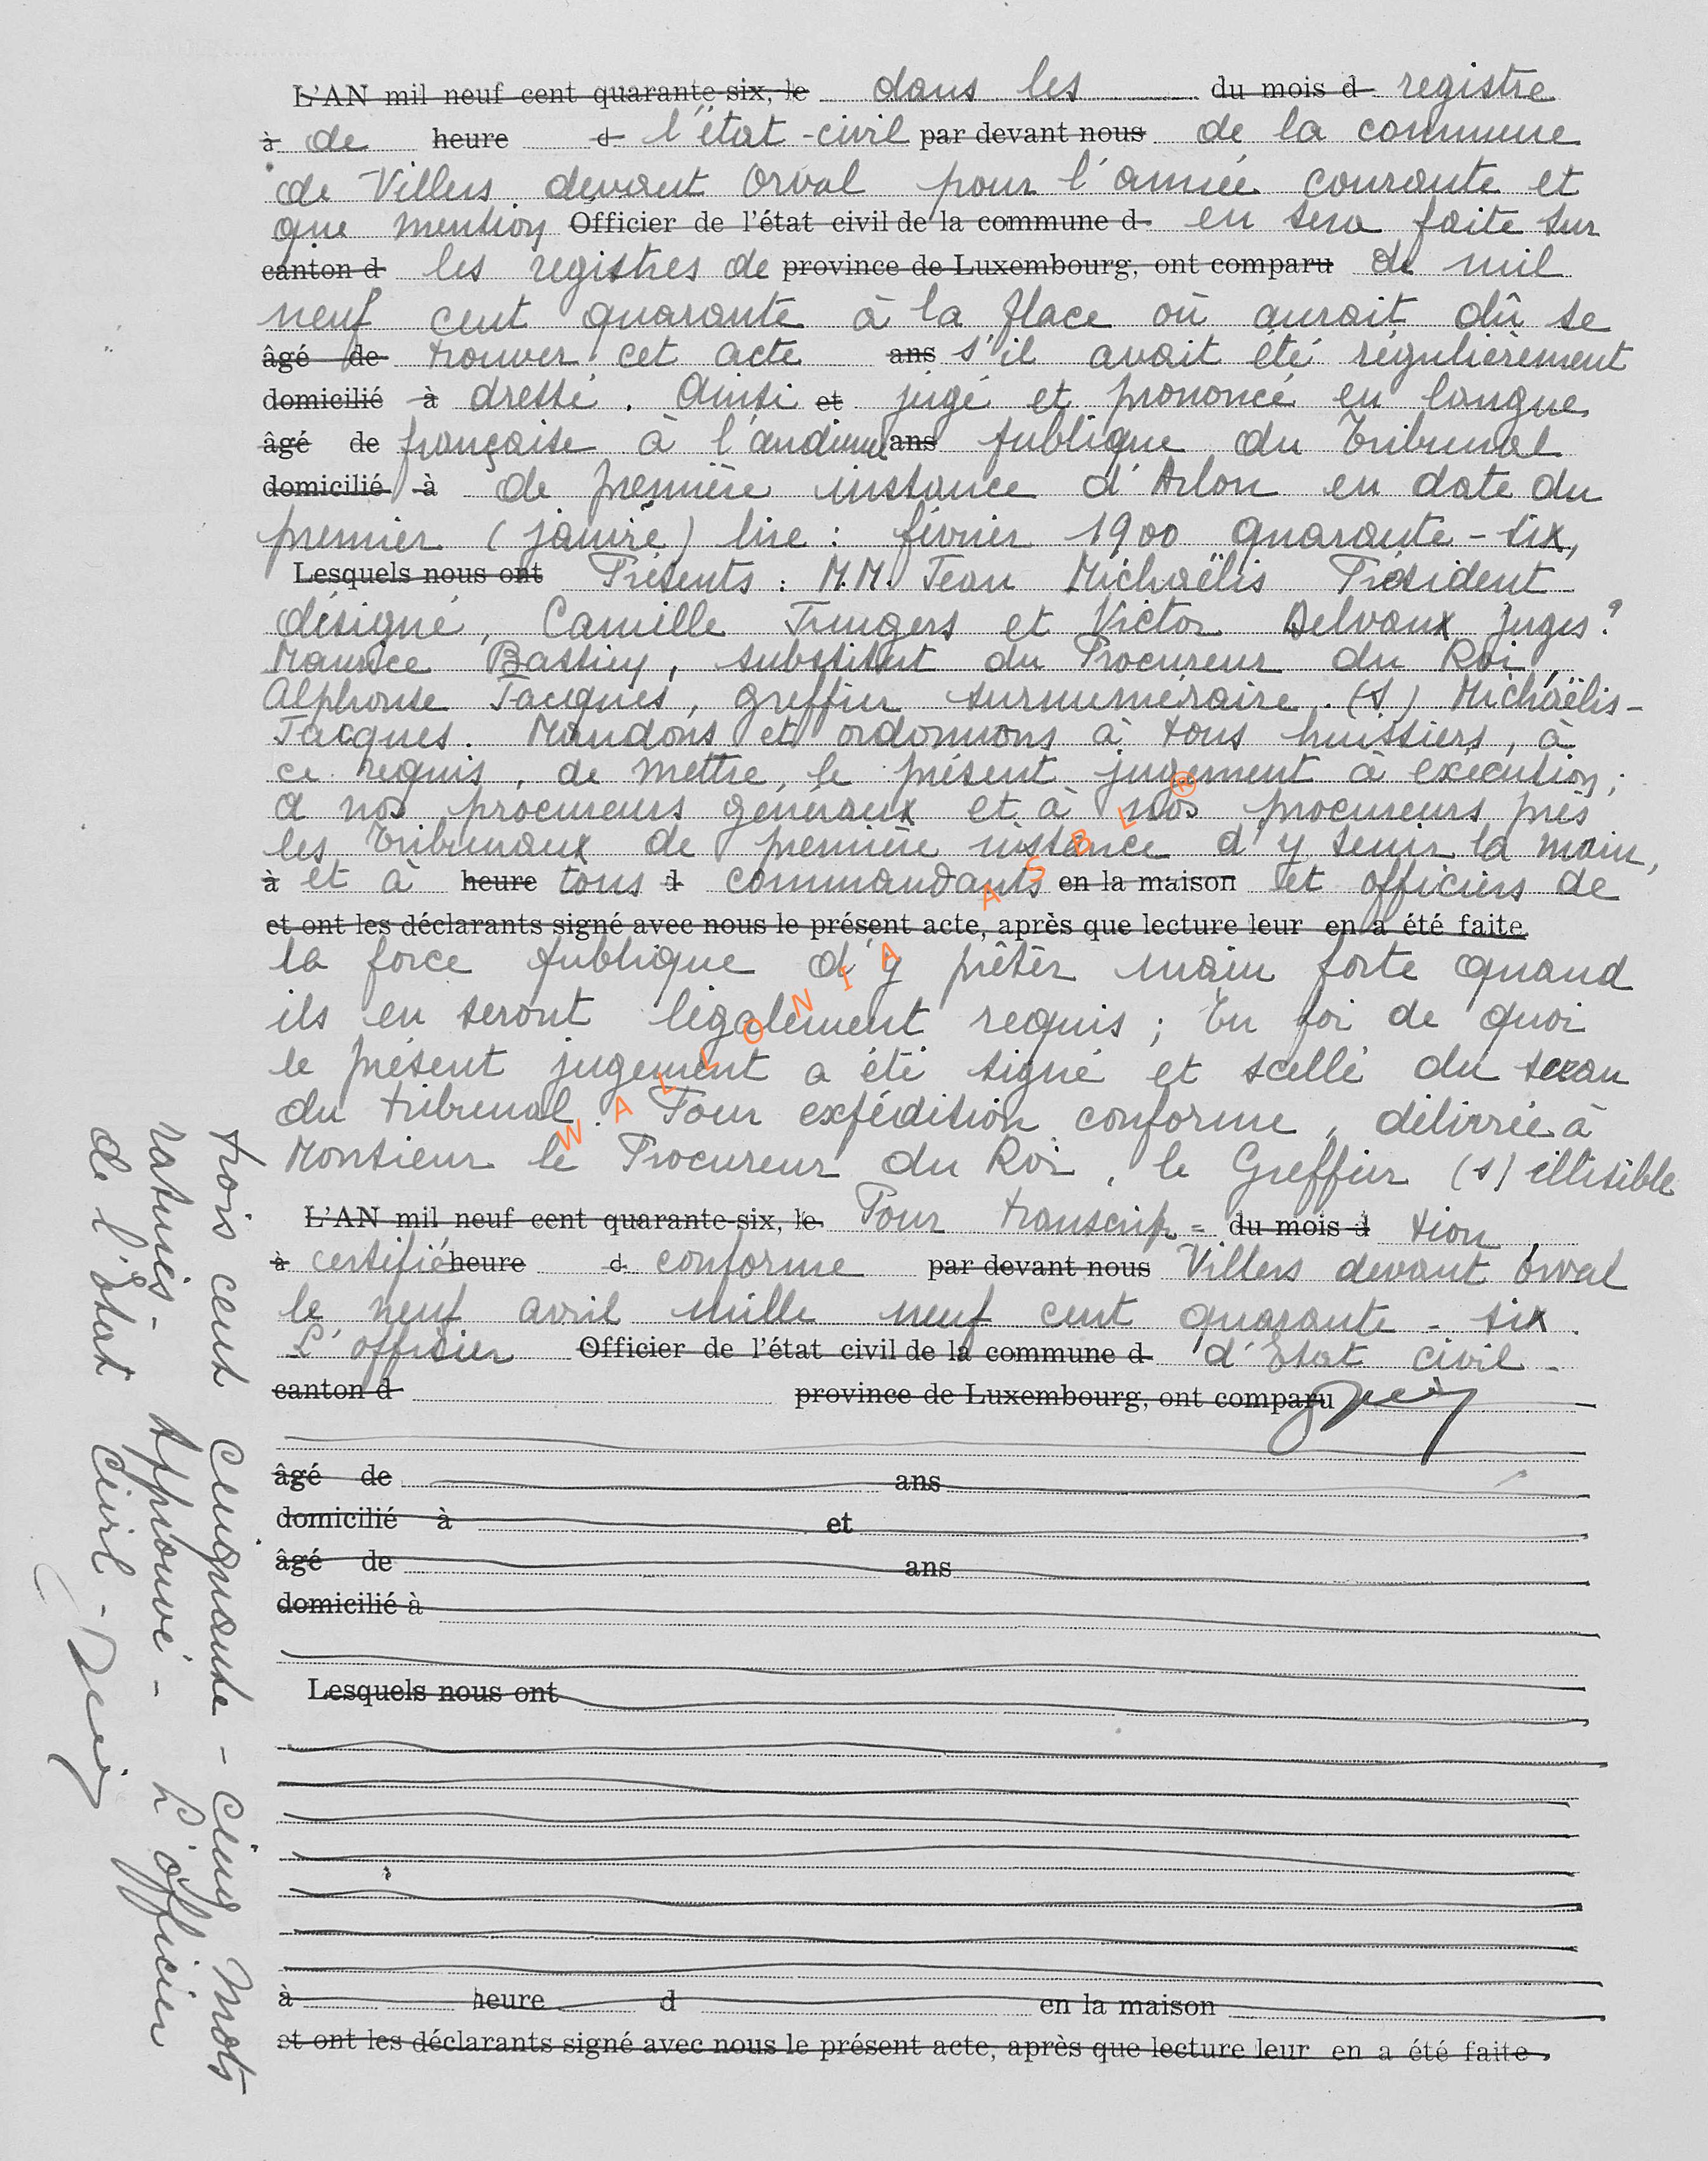 L'AN mil neuf cent quarante-six, le dans les du mois d registre
à de heure d l'état-civil par devant nous de la commune
de Villers devant Orval pour l'année courante et
que mention Officier de l'état civil de la commune d en sera faite sur
canton d les registres de province de Luxembourg, ont comparu de mil
neuf cent quarante à la place où aurait dû se
âgé de trouver cet acte ans s'il avait été régulièrement
domicilié à dressé. Ainsi et jugé et prononcé en langue
âgé de française à l'audience ans publique du Tribunal
domicilié à de première instance d'Arlon en date du
premier (janvié) lire : février 1900 quarante-six,
Lesquels nous ont Présents : M.M. Jean Michaëlis Président
désigné, Camille et Victor Delvaux juges ?
Maurice Bastin, substitut du Procureur du Roi,
Alphonse Jacques, greffier surnuméraire. (s) Michaëlis-
Jacques. Mandons et ordonnons à tous huissiers, à
ce requis, de mettre, le présent jugement à exécution ;
a nos procureurs généraux et à nos procureurs près
les Tribunaux de première instance d'y tenir la main,
à et à heure tous d commandants en la maison et officiers de
et ont les déclarants signé avec nous le présent acte, après que lecture leur en a été faite.
la force publique d'y prêter main forte quand
ils en seront légalement requis ; En foi de quoi
le présent jugement a été signé et scellé du sceau
du tribunal. Pour expédition conforme, délivrée à
Monsieur le Procureur du Roi, le Greffier (s) illisible
L'AN mil neuf cent quarante-six, le Pour transcrip= du mois d tion
à certifié heure d conforme par devant nous Villers devant Orval
le neuf avril mille neuf cent quarante-six.
L'officier Officier de l'état civil de la commune d d'Etat civil-
canton d province de Luxembourg, ont comparu
âgé de ans
domicilié à et
âgé de ans
domicilié à
Lesquels nous ont
à heure d en la maison
et ont les déclarants signé avec nous le présent acte, après que lecture leur en a été faite.
trois cent cinquante-cinq mots
raturés - Approuvé - L'officier
de l'Etat Civil -
WALLONIA ASBL ®